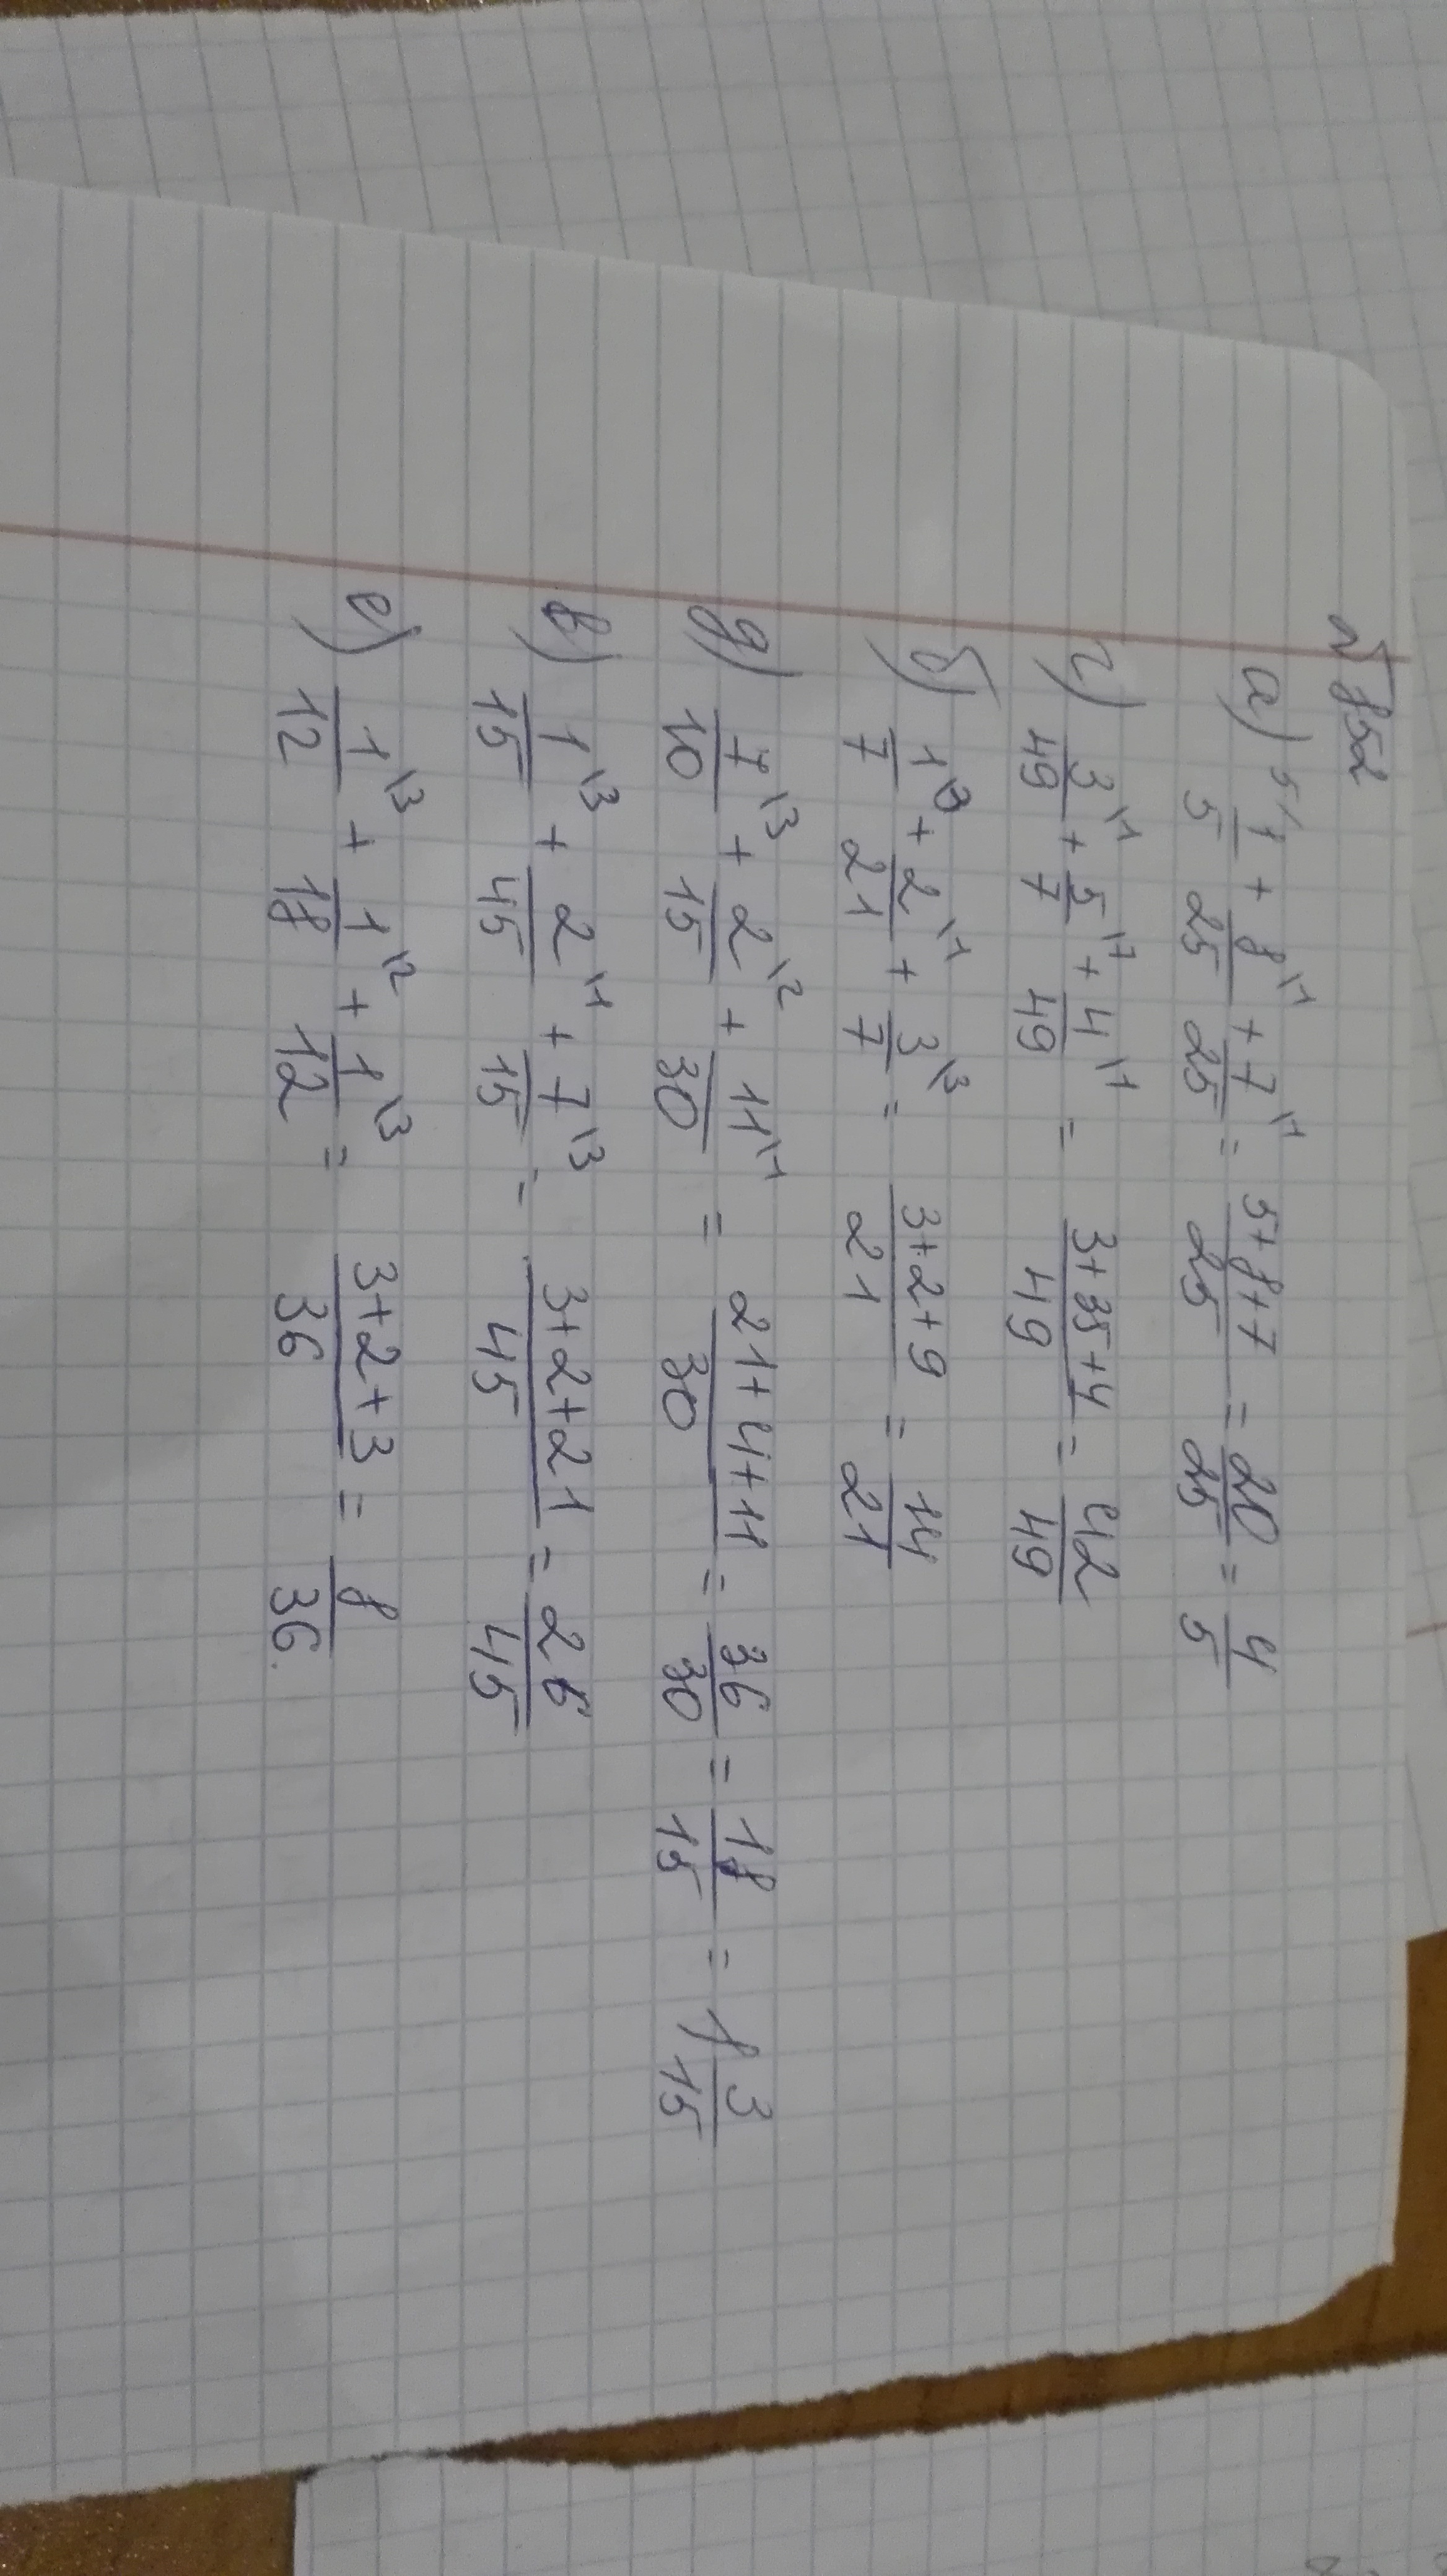 № 852
а) 1/5 \5 + 8/25 \1 + 7/25 \1 = (5+8+7)/25 = 20/25 = 4/5
г) 3/49 \1 + 5/7 \7 + 4/49 \1 = (3+35+4)/49 = 42/49
б) 1/7 \3 + 2/21 \1 + 3/7 \3 = (3+2+9)/21 = 14/21
д) 7/10 \3 + 2/15 \2 + 11/30 \1 = (21+4+11)/30 = 36/30 = 18/15 = 1 3/15
в) 1/15 \3 + 2/45 \1 + 7/15 \3 = (3+2+21)/45 = 26/45
е) 1/12 \3 + 1/18 \2 + 1/12 \3 = (3+2+3)/36 = 8/36.